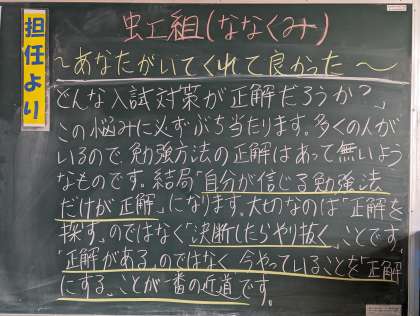 担任より
虹組(ななくみ)
～あなたがいてくれて良かった～
「どんな入試対策が正解だろうか?」
この悩みに必ずぶち当たります。多くの人が
いるので、勉強方法の正解はあって無いよう
なものです。結局「自分が信じる勉強法
だけが正解」になります。大切なのは「正解を
探す」のではなく「決断したらやり抜く」ことです。
「正解がある」のではなく 今やっていることを「正解
にする」ことが一番の近道です。